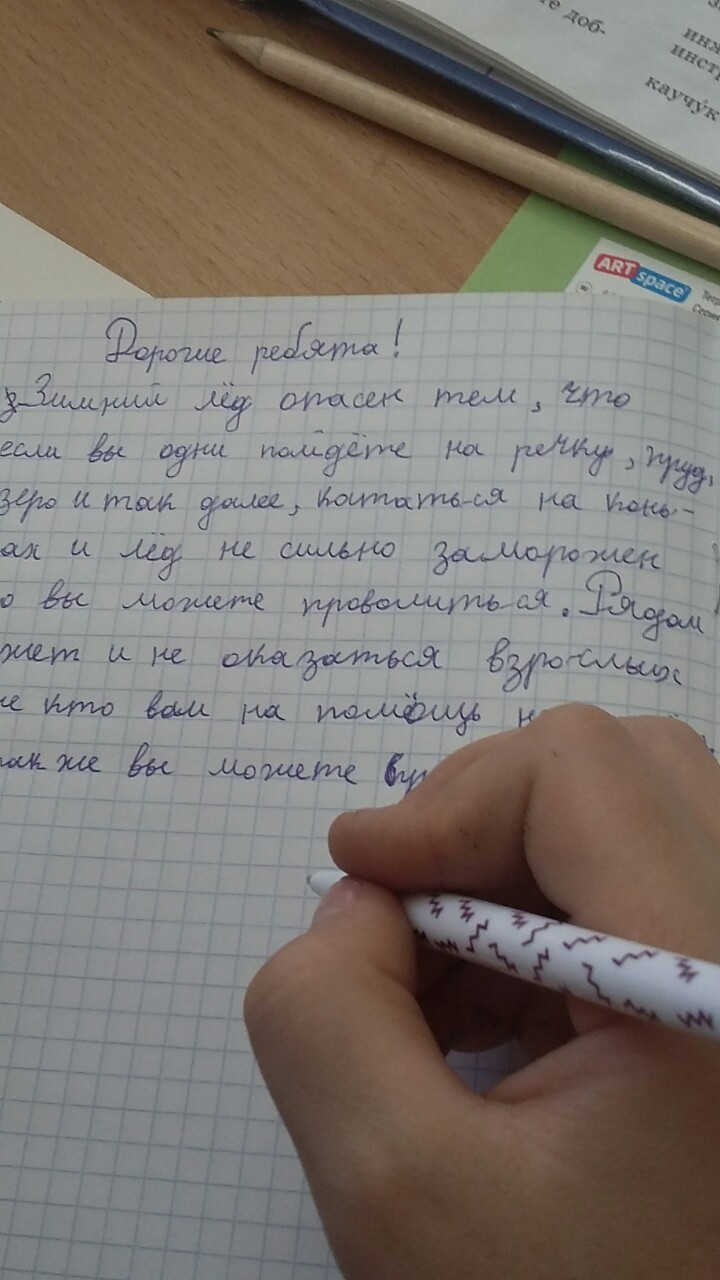 те доб-
инж
инстр
каучу́к
ART space
Дорогие ребята!
Зимний лёд опасен тем, что
если вы одни пойдёте на речку, пруд,
зеро и так далее, кататься на конь-
ах и лёд не сильно заморожен
о вы можете провалиться. Рядом
жет и не оказаться взрослых
не кто вам на помощь
так же вы можете